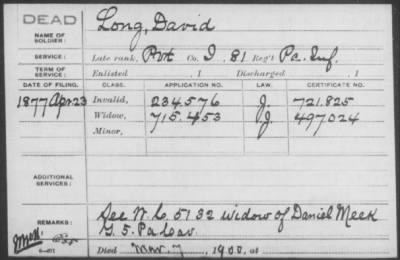 DEAD
NAME OF SOLDIER: Long, David
SERVICE: Late rank, Pvt Co. I, 81 Reg't Pa. Inf.
TERM OF SERVICE: Enlisted , 1 Discharged , 1
DATE OF FILING. CLASS. APPLICATION NO. LAW. CERTIFICATE NO.
1877 Apr. 23 Invalid, 234.576 J. 721.825
Widow, 715.453 J. 497024
Minor,
ADDITIONAL SERVICES:
REMARKS: See W. C. 5132 widow of Daniel Meek
G. 5. Pa Cav.
Died Mar. 7, 1900, at